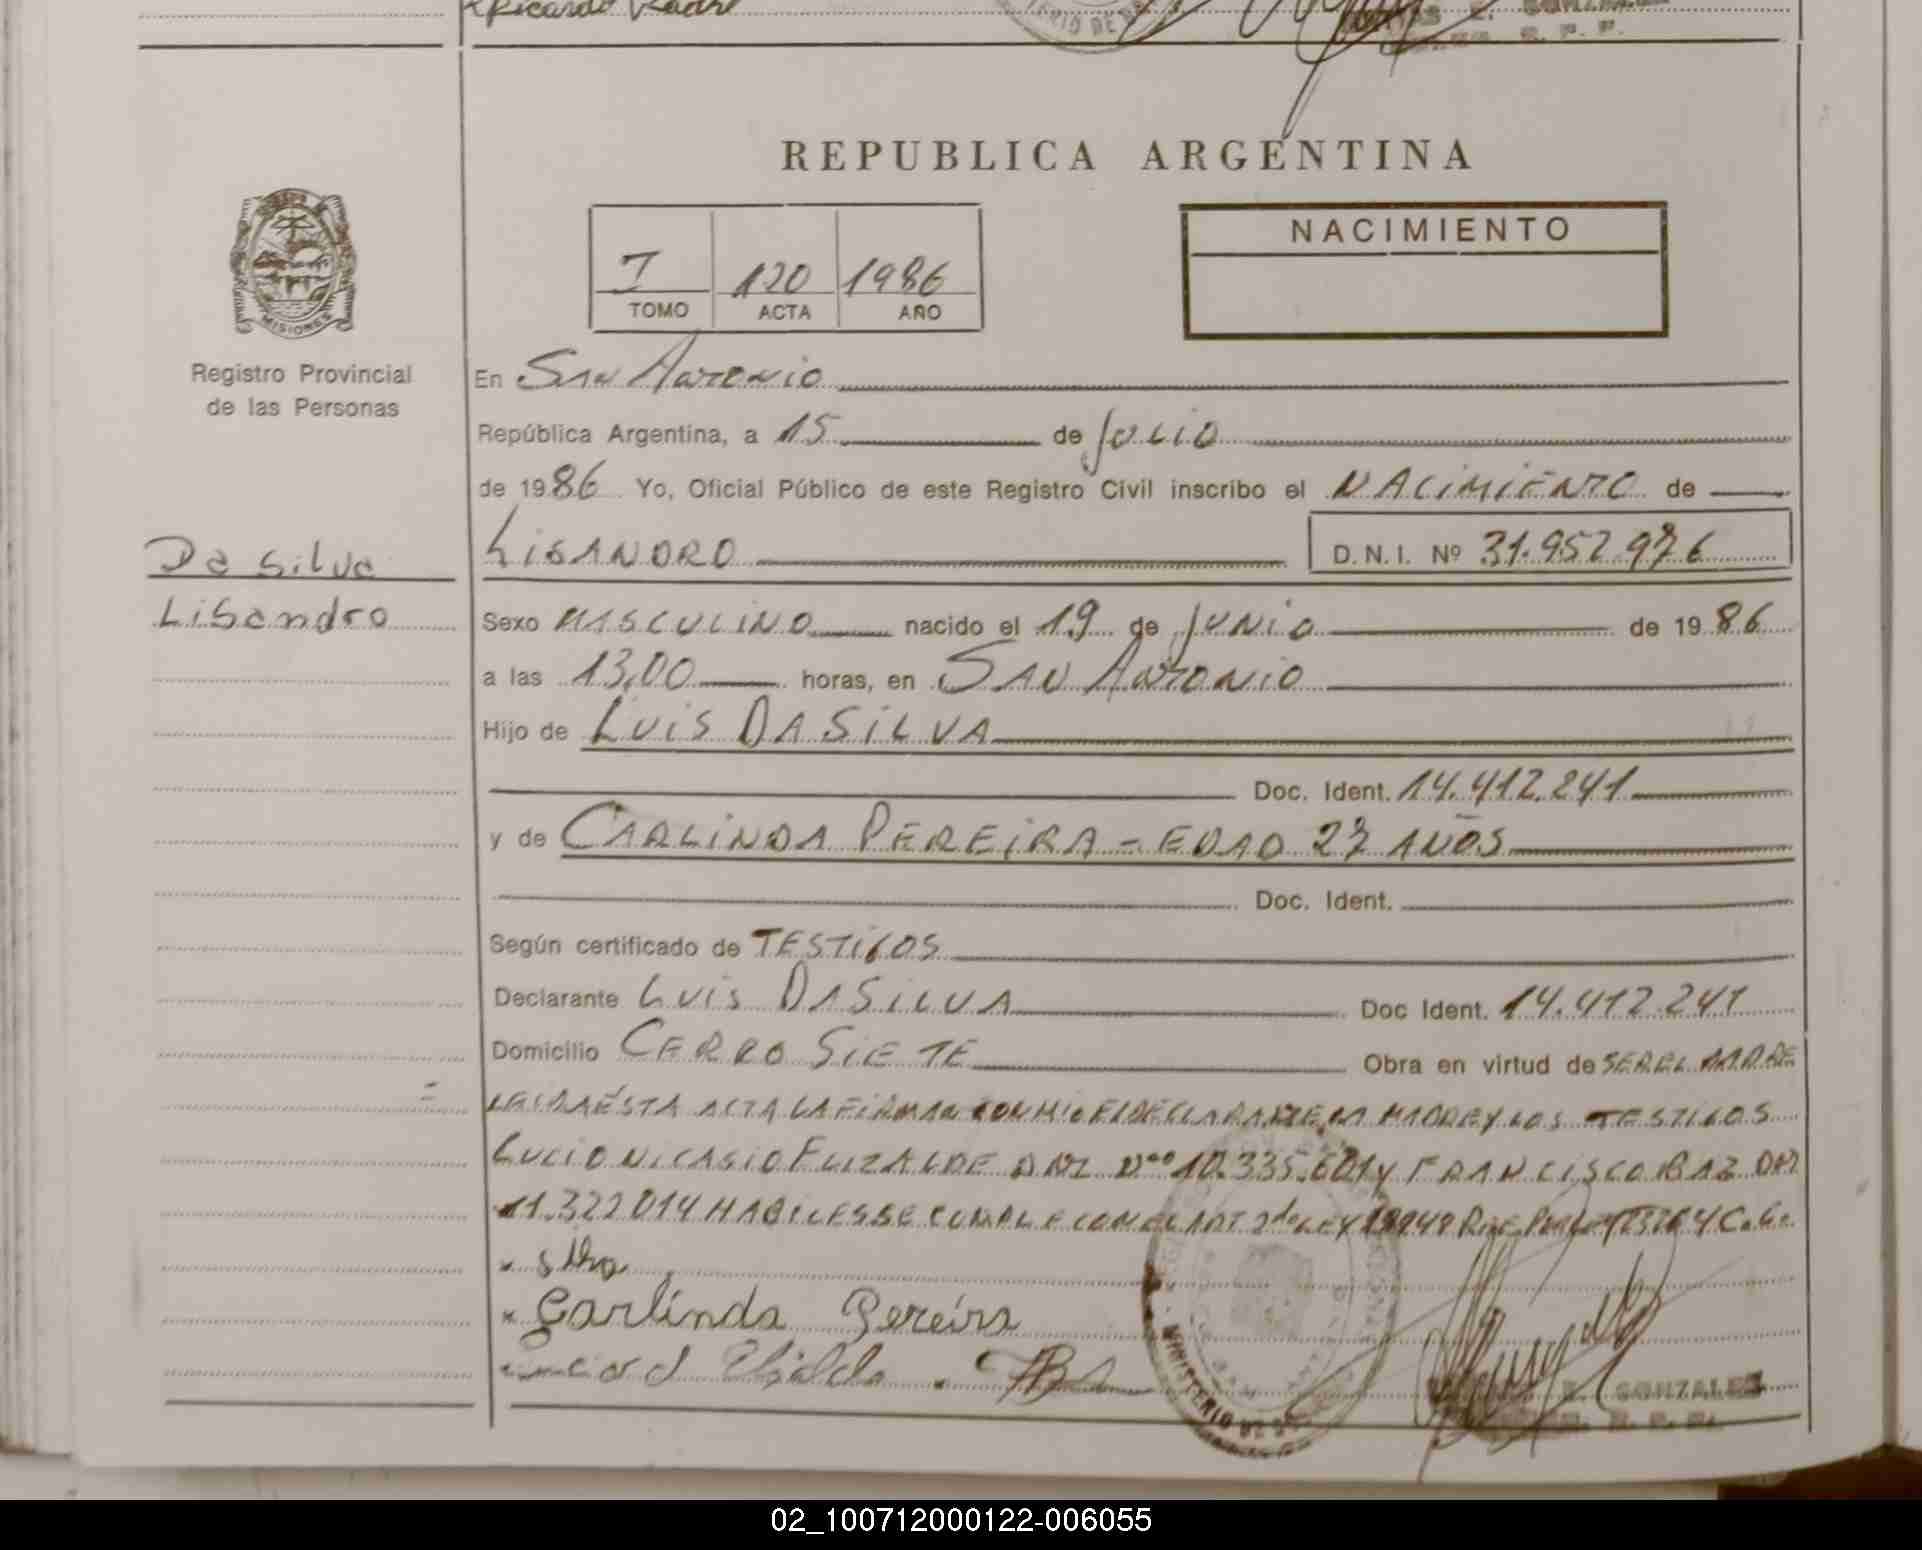 Ricardo
REPUBLICA ARGENTINA
NACIMIENTO
I 120 1986
TOMO ACTA AÑO
MISIONES
Registro Provincial
de las Personas
En San Antonio
República Argentina, a 15 de Julio
de 1986 Yo, Oficial Público de este Registro Civil inscribo el NACIMIENTO de
LISANDRO D.N.I. Nº 31.952.976
Da Silva
Lisandro
Sexo MASCULINO nacido el 19 de JUNIO de 1986
a las 13,00 horas, en SAN ANTONIO
Hijo de LUIS DA SILVA
Doc. Ident. 14.412.241
y de CARLINDA PEREIRA - EDAD 27 AÑOS
Doc. Ident.
Según certificado de TESTIGOS
Declarante LUIS DA SILVA Doc Ident. 14.412.241
Domicilio CERRO SIETE Obra en virtud de SER EL PADRE
LEIDA ÉSTA ACTA LA FIRMAN CONMIGO EL DECLARANTE LA MADRE Y LOS TESTIGOS
LUCIO NICASIO ELIZALDE DNI 10.335.601 Y FRANCISCO BAZ DNI
11.322014 HABILES SE CUMPLE CON EL ART 2do LEY
Carlinda Pereira
MINISTERIO DE
E. GONZALEZ
02_100712000122-006055